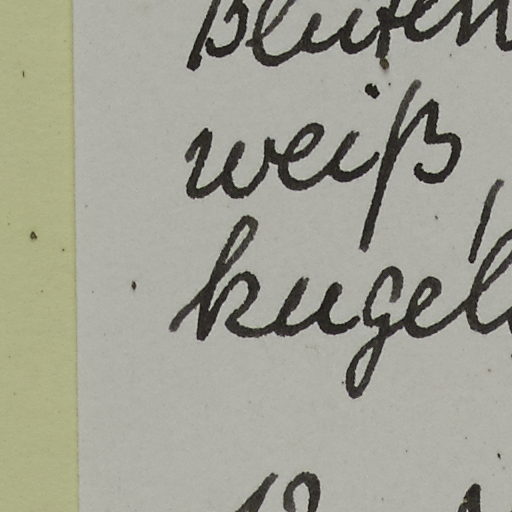 Blüten
weiß,
kugel